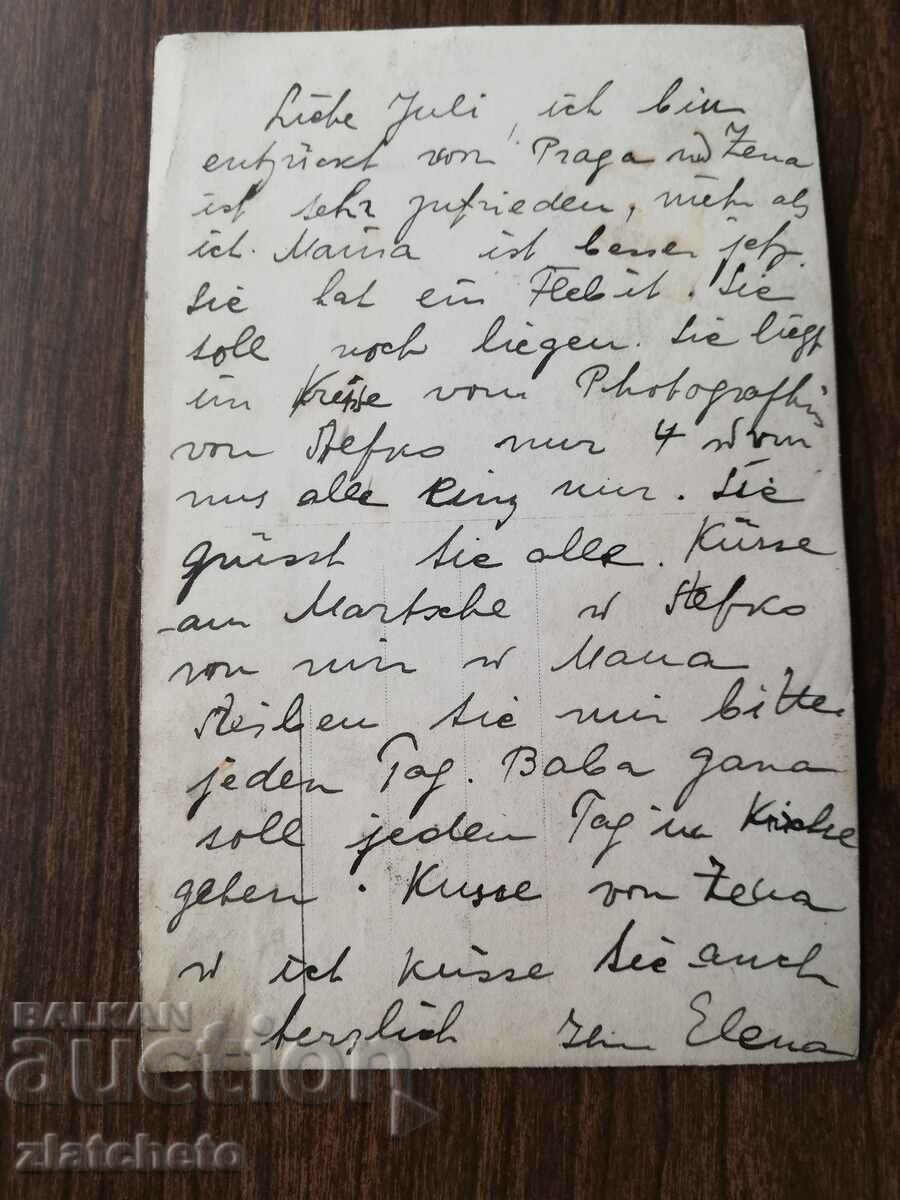 Liebe Juli, ich bin
entzückt von Praga Zena
ist sehr zufrieden, mehr als
ich. Mama ist besser jetz.
Sie hat ein Flebit. Sie
soll noch liegen. Sie liegt
im vom
von Stefko nur 4
alle nur. Sie
grüsst Sie alle. Küsse
am Martsche Stefko
von mir Mana
Sie mir bitte
jeden Tag. Baba gana
soll jeden Tag in
gehen. Kusse von Zena
ich küsse Sie auch
herzlich Elena
BALKAN
auction
zlatcheto